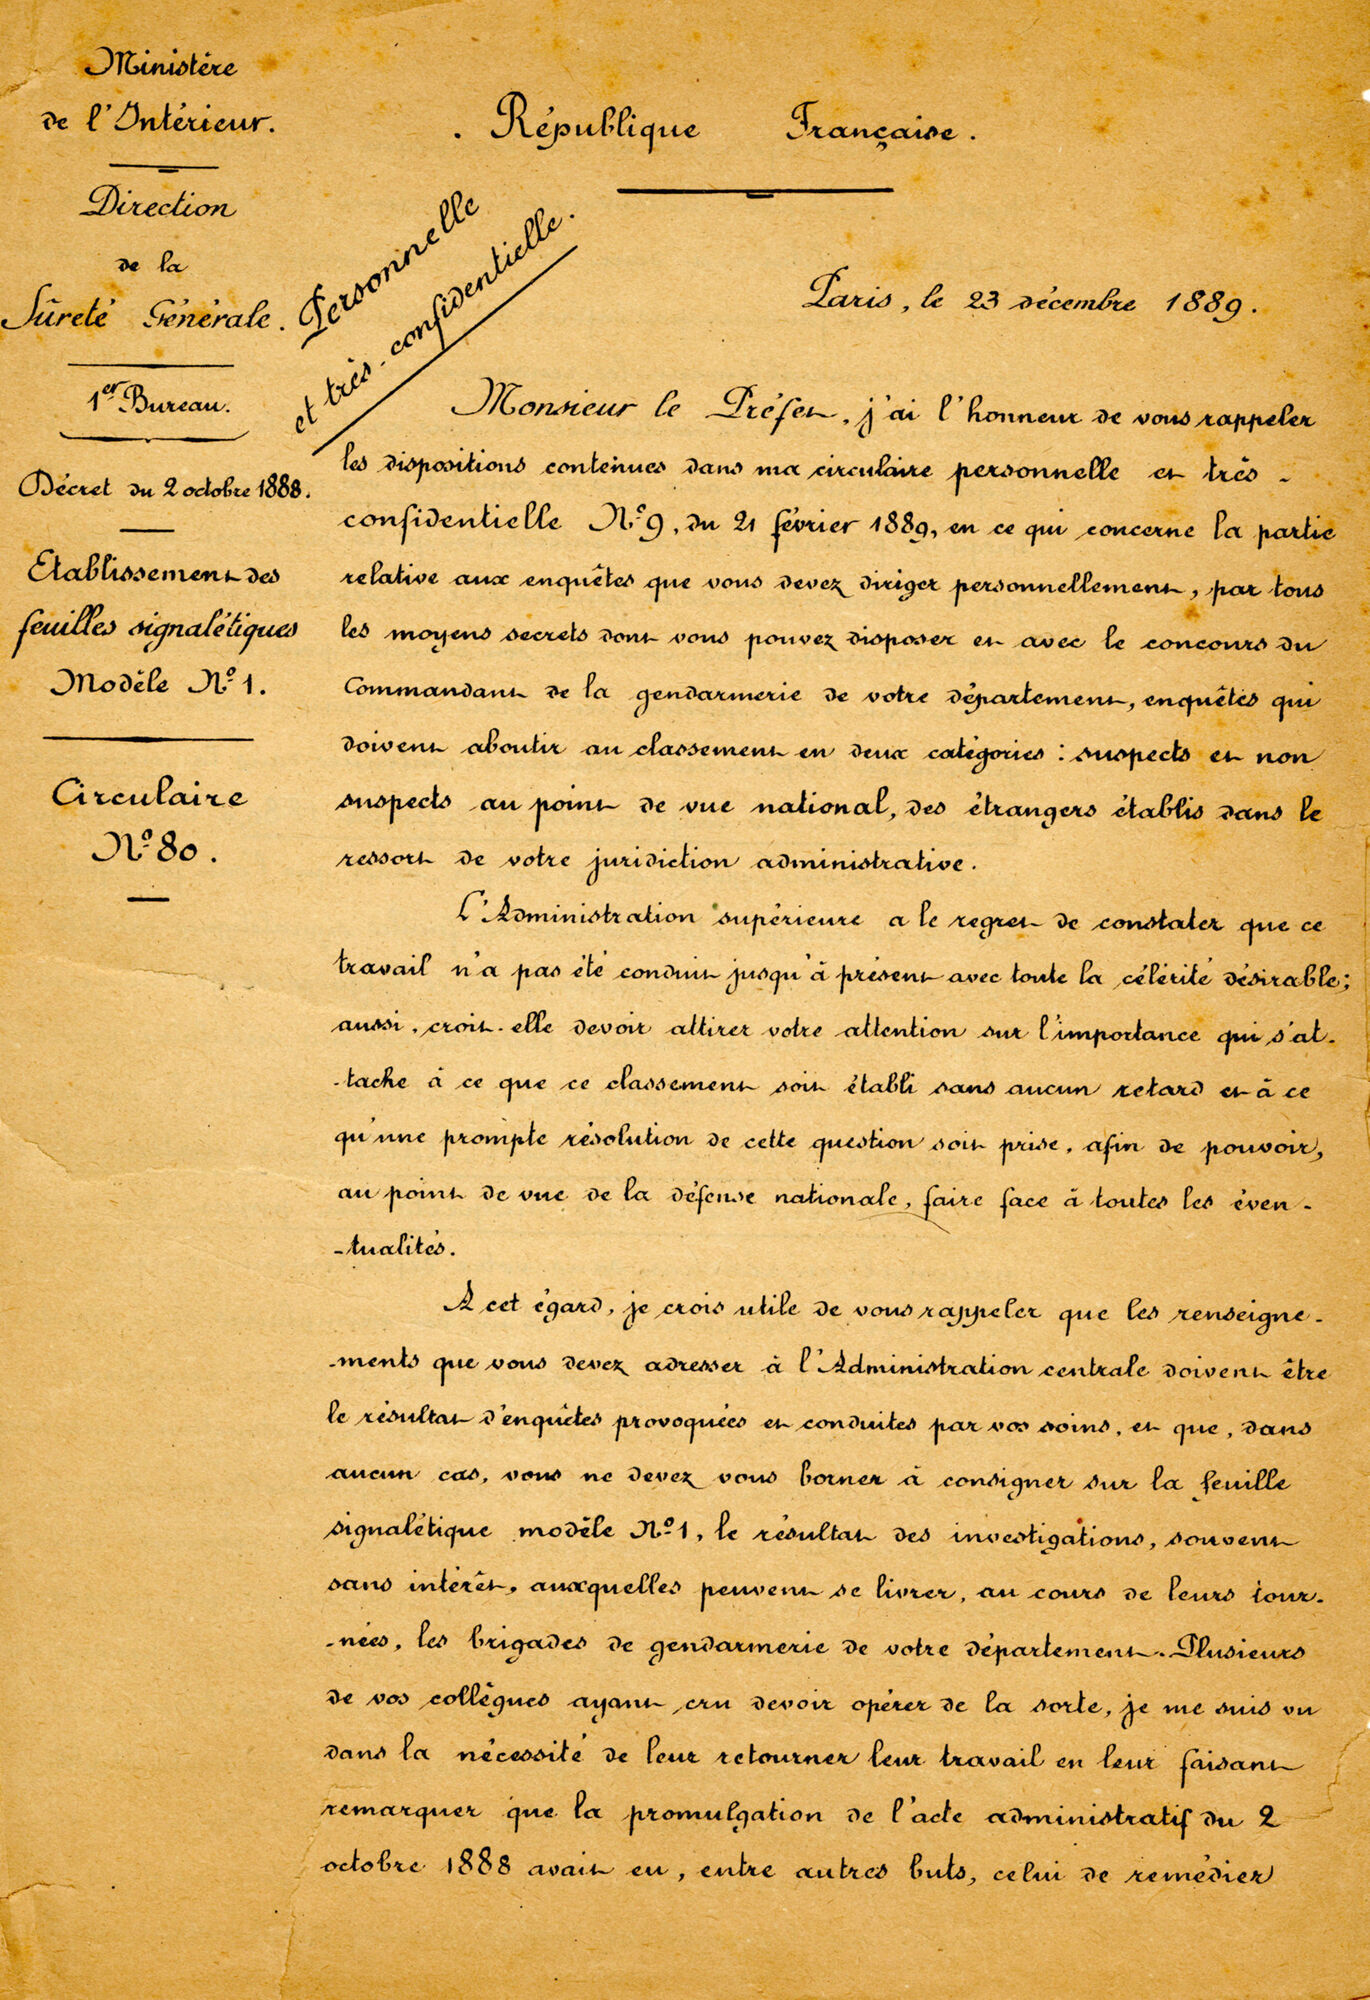 Ministère
de l'Intérieur.
Direction
de la
Sûreté Générale.
1er Bureau.
Décret du 2 octobre 1888.
Etablissement des
feuilles signalétiques
Modèle Nº 1.
Circulaire
Nº 80.
République Française.
Personnelle
et très-confidentielle.
Paris, le 23 décembre 1889.
Monsieur le Préfet, j'ai l'honneur de vous rappeler
les dispositions contenues dans ma circulaire personnelle et très-
confidentielle Nº 9, du 21 février 1889, en ce qui concerne la partie
relative aux enquêtes que vous devez diriger personnellement, par tous
les moyens secrets dont vous pouvez disposer et avec le concours du
Commandant de la gendarmerie de votre département, enquêtes qui
doivent aboutir au classement en deux catégories : suspects et non
suspects au point de vue national, des étrangers établis dans le
ressort de votre juridiction administrative.
L'Administration supérieure a le regret de constater que ce
travail n'a pas été conduit jusqu'à présent avec toute la célérité désirable;
aussi, croit-elle devoir attirer votre attention sur l'importance qui s'at-
-tache à ce que ce classement soit établi sans aucun retard et à ce
qu'une prompte résolution de cette question soit prise, afin de pouvoir,
au point de vue de la défense nationale, faire face à toutes les éven-
-tualités.
A cet égard, je crois utile de vous rappeler que les renseigne-
-ments que vous devez adresser à l'Administration centrale doivent être
le résultat d'enquêtes provoquées et conduites par vos soins, et que, dans
aucun cas, vous ne devez vous borner à consigner sur la feuille
signalétique modèle Nº 1, le résultat des investigations, souvent
sans intérêt, auxquelles peuvent se livrer, au cours de leurs tour-
-nées, les brigades de gendarmerie de votre département. Plusieurs
de vos collègues ayant cru devoir opérer de la sorte, je me suis vu
dans la nécessité de leur retourner leur travail en leur faisant
remarquer que la promulgation de l'acte administratif du 2
octobre 1888 avait eu, entre autres buts, celui de remédier